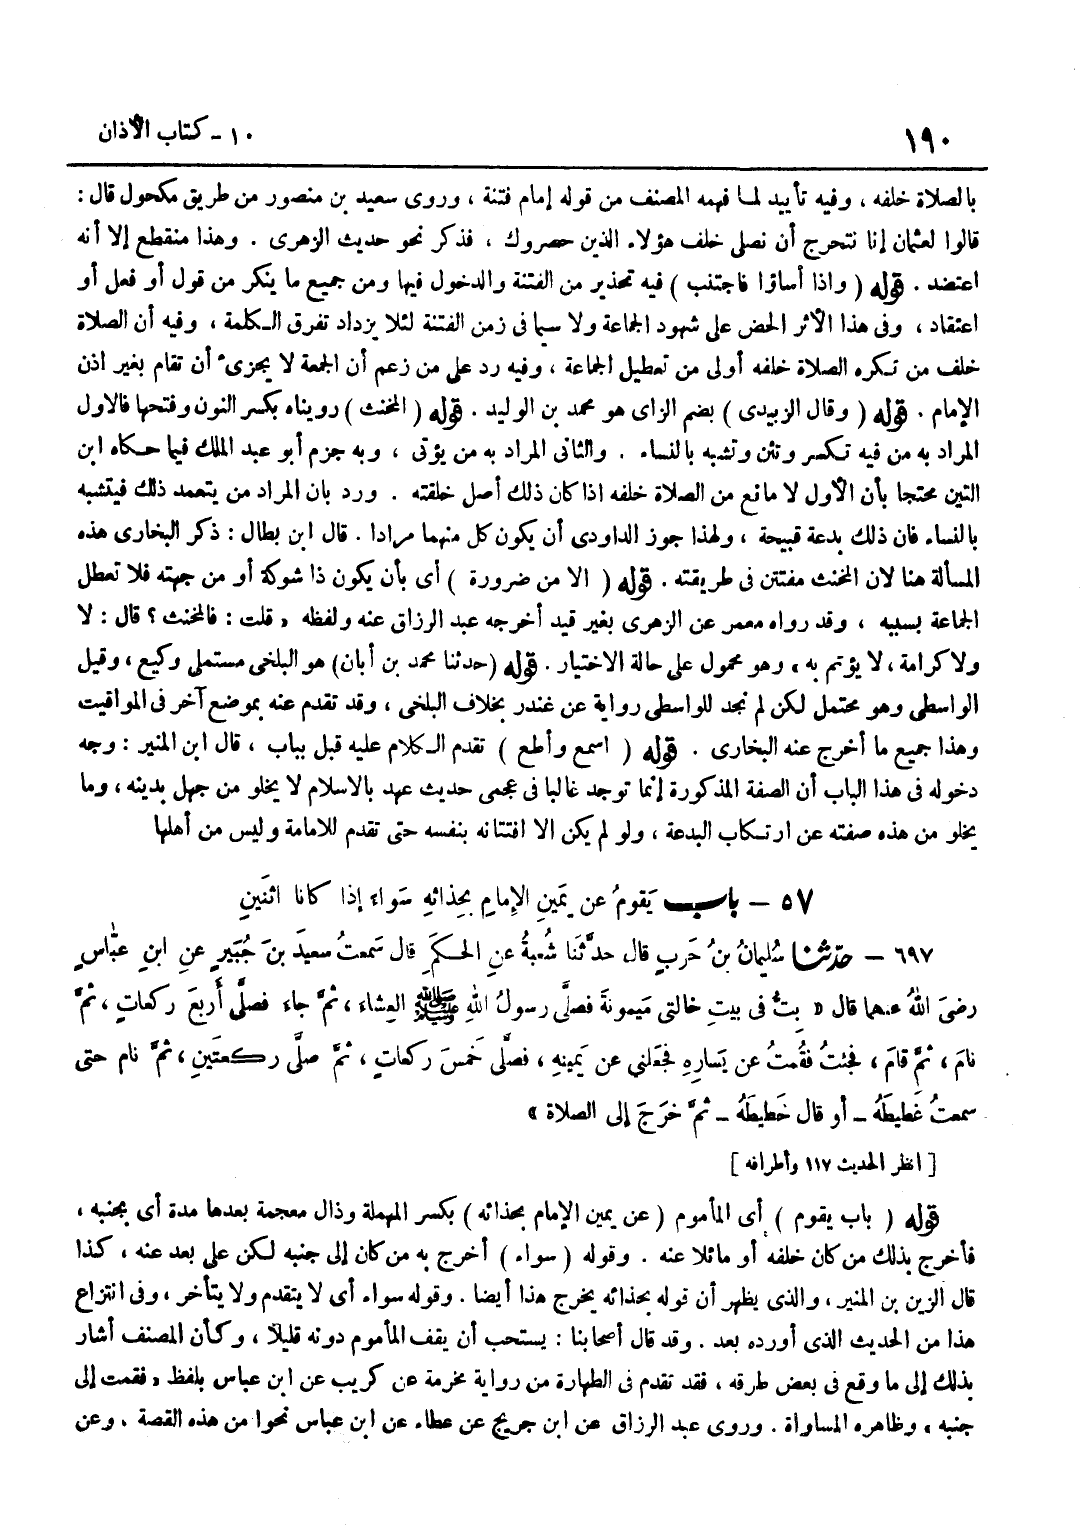 ١٩٠
١٠ - كتاب الأذان
بالصلاة خلفه ، وفيه تأييد لما فهمه المصنف من قوله إمام فتنة ، وروى سعيد بن منصور من طريق مكحول قال :
قالوا لعثمان إنا نتحرج أن نصلى خلف هؤلاء الذين حصروك ، فذكر نحو حديث الزهرى . وهذا منقطع إلا أنه
اعتضد . قوله ( واذا أساؤا فاجتنب ) فيه تحذير من الفتنة والدخول فيها ومن جميع ما ينكر من قول أو فعل أو
اعتقاد ، وفى هذا الأثر الحض على شهود الجماعة ولا سيما فى زمن الفتنة لئلا يزداد تفرق الكلمة ، وفيه أن الصلاة
خلف من تكره الصلاة خلفه أولى من تعطيل الجماعة ، وفيه رد على من زعم أن الجمعة لا يجزىء أن تقام بغير اذن
الإمام . قوله ( وقال الزبيدى ) بضم الزاى هو محمد بن الوليد . قوله ( المخنث ) رويناه بكسر النون وفتحها فالاول
المراد به من فيه تكسر وتثن وتشبه بالنساء . والثانى المراد به من يؤتى ، وبه جزم أبو عبد الملك فيما حكاه ابن
التين محتجا بأن الأول لا مانع من الصلاة خلفه اذا كان ذلك أصل خلقته . ورد بان المراد من يتعمد ذلك فيتشبه
بالنساء فان ذلك بدعة قبيحة ، ولهذا جوز الداودى أن يكون كل منهما مرادا . قال ابن بطال : ذكر البخارى هذه
المسألة هنا لان المخنث مفتتن فى طريقته . قوله ( الا من ضرورة ) أى بأن يكون ذا شوكة أو من جهته فلا تعطل
الجماعة بسببه ، وقد رواه معمر عن الزهرى بغير قيد أخرجه عبد الرزاق عنه ولفظه « قلت : فالمخنث ؟ قال : لا
ولا كرامة ، لا يؤتم به » وهو محمول على حالة الاختيار . قوله (حدثنا محمد بن أبان) هو البلخى مستملى وكيع ، وقيل
الواسطى وهو محتمل لكن لم نجد للواسطى رواية عن غندر بخلاف البلخى ، وقد تقدم عنه بموضع آخر فى المواقيت
وهذا جميع ما أخرج عنه البخارى . قوله ( اسمع وأطع ) تقدم الكلام عليه قبل بباب ، قال ابن المنير : وجه
دخوله فى هذا الباب أن الصفة المذكورة إنما توجد غالبا فى عجمى حديث عهد بالاسلام لا يخلو من جهل بدينه ، وما
يخلو من هذه صفته عن ارتكاب البدعة ، ولو لم يكن الا افتتانه بنفسه حتى تقدم للامامة وليس من أهلها
٥٧ - باب يَقومُ عن يَمينِ الإمامِ بحِذائهِ سَواء إذا كانا اثنَينِ
٦٩٧ - حدّثنا سُليمانُ بنُ حَربٍ قال حدَّثَنا شُعبةُ عنِ الحكَمِ قال سَمعتُ سعيدَ بنَ جُبَيرٍ عنِ ابنِ عبّاسٍ
رضىَ اللهُ عنهما قال « بِتُّ فى بيتِ خالتى مَيمونةَ فصلَّى رسولُ اللهِ ﷺ العِشاء ، ثمَّ جاء فصلَّى أربَعَ ركعاتٍ ، ثمَّ
نامَ ، ثمَّ قامَ ، فجئتُ فقُمتُ عن يَسارِهِ فجَعَلني عن يَمينهِ ، فصلَّى خَمسَ ركعاتٍ ، ثمَّ صلَّى ركعتَينِ ، ثمَّ نام حتى
سمعتُ غَطيطَهُ - أو قال خَطيطَهُ - ثمَّ خرَجَ إلى الصلاة »
[ انظر الحديث ١١٧ وأطرافه ]
قوله ( باب يقوم ) أى المأموم ( عن يمين الإمام بحذائه ) بكسر المهملة وذال معجمة بعدها مدة أى بجنبه ،
فأخرج بذلك من كان خلفه أو مائلا عنه . وقوله ( سواء ) أخرج به من كان إلى جنبه لكن على بعد عنه ، كذا
قال الزين بن المنير ، والذى يظهر أن قوله بحذائه يخرج هذا أيضا . وقوله سواء أى لا يتقدم ولا يتأخر ، وفى انتزاع
هذا من الحديث الذى أورده بعد . وقد قال أصحابنا : يستحب أن يقف المأموم دونه قليلا ، وكأن المصنف أشار
بذلك إلى ما وقع فى بعض طرقه ، فقد تقدم فى الطهارة من رواية مخرمة عن كريب عن ابن عباس بلفظ « فقمت إلى
جنبه » وظاهره المساواة . وروى عبد الرزاق عن ابن جريج عن عطاء عن ابن عباس نحوا من هذه القصة . وعن